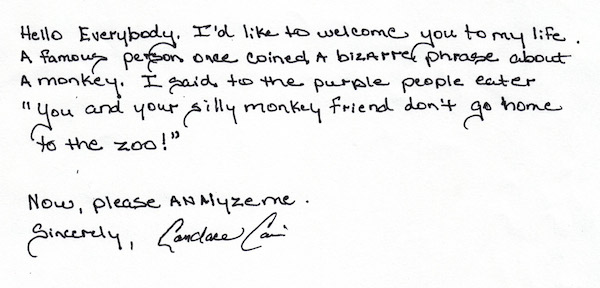 Hello Everybody. I'd like to welcome you to my life.
A famous person once coined A bizarre phrase about
A monkey. I said to the purple people eater
"You and your silly monkey friend don't go home
to the zoo!"
Now, please ANAlyze me.
Sincerely, Candace Cain